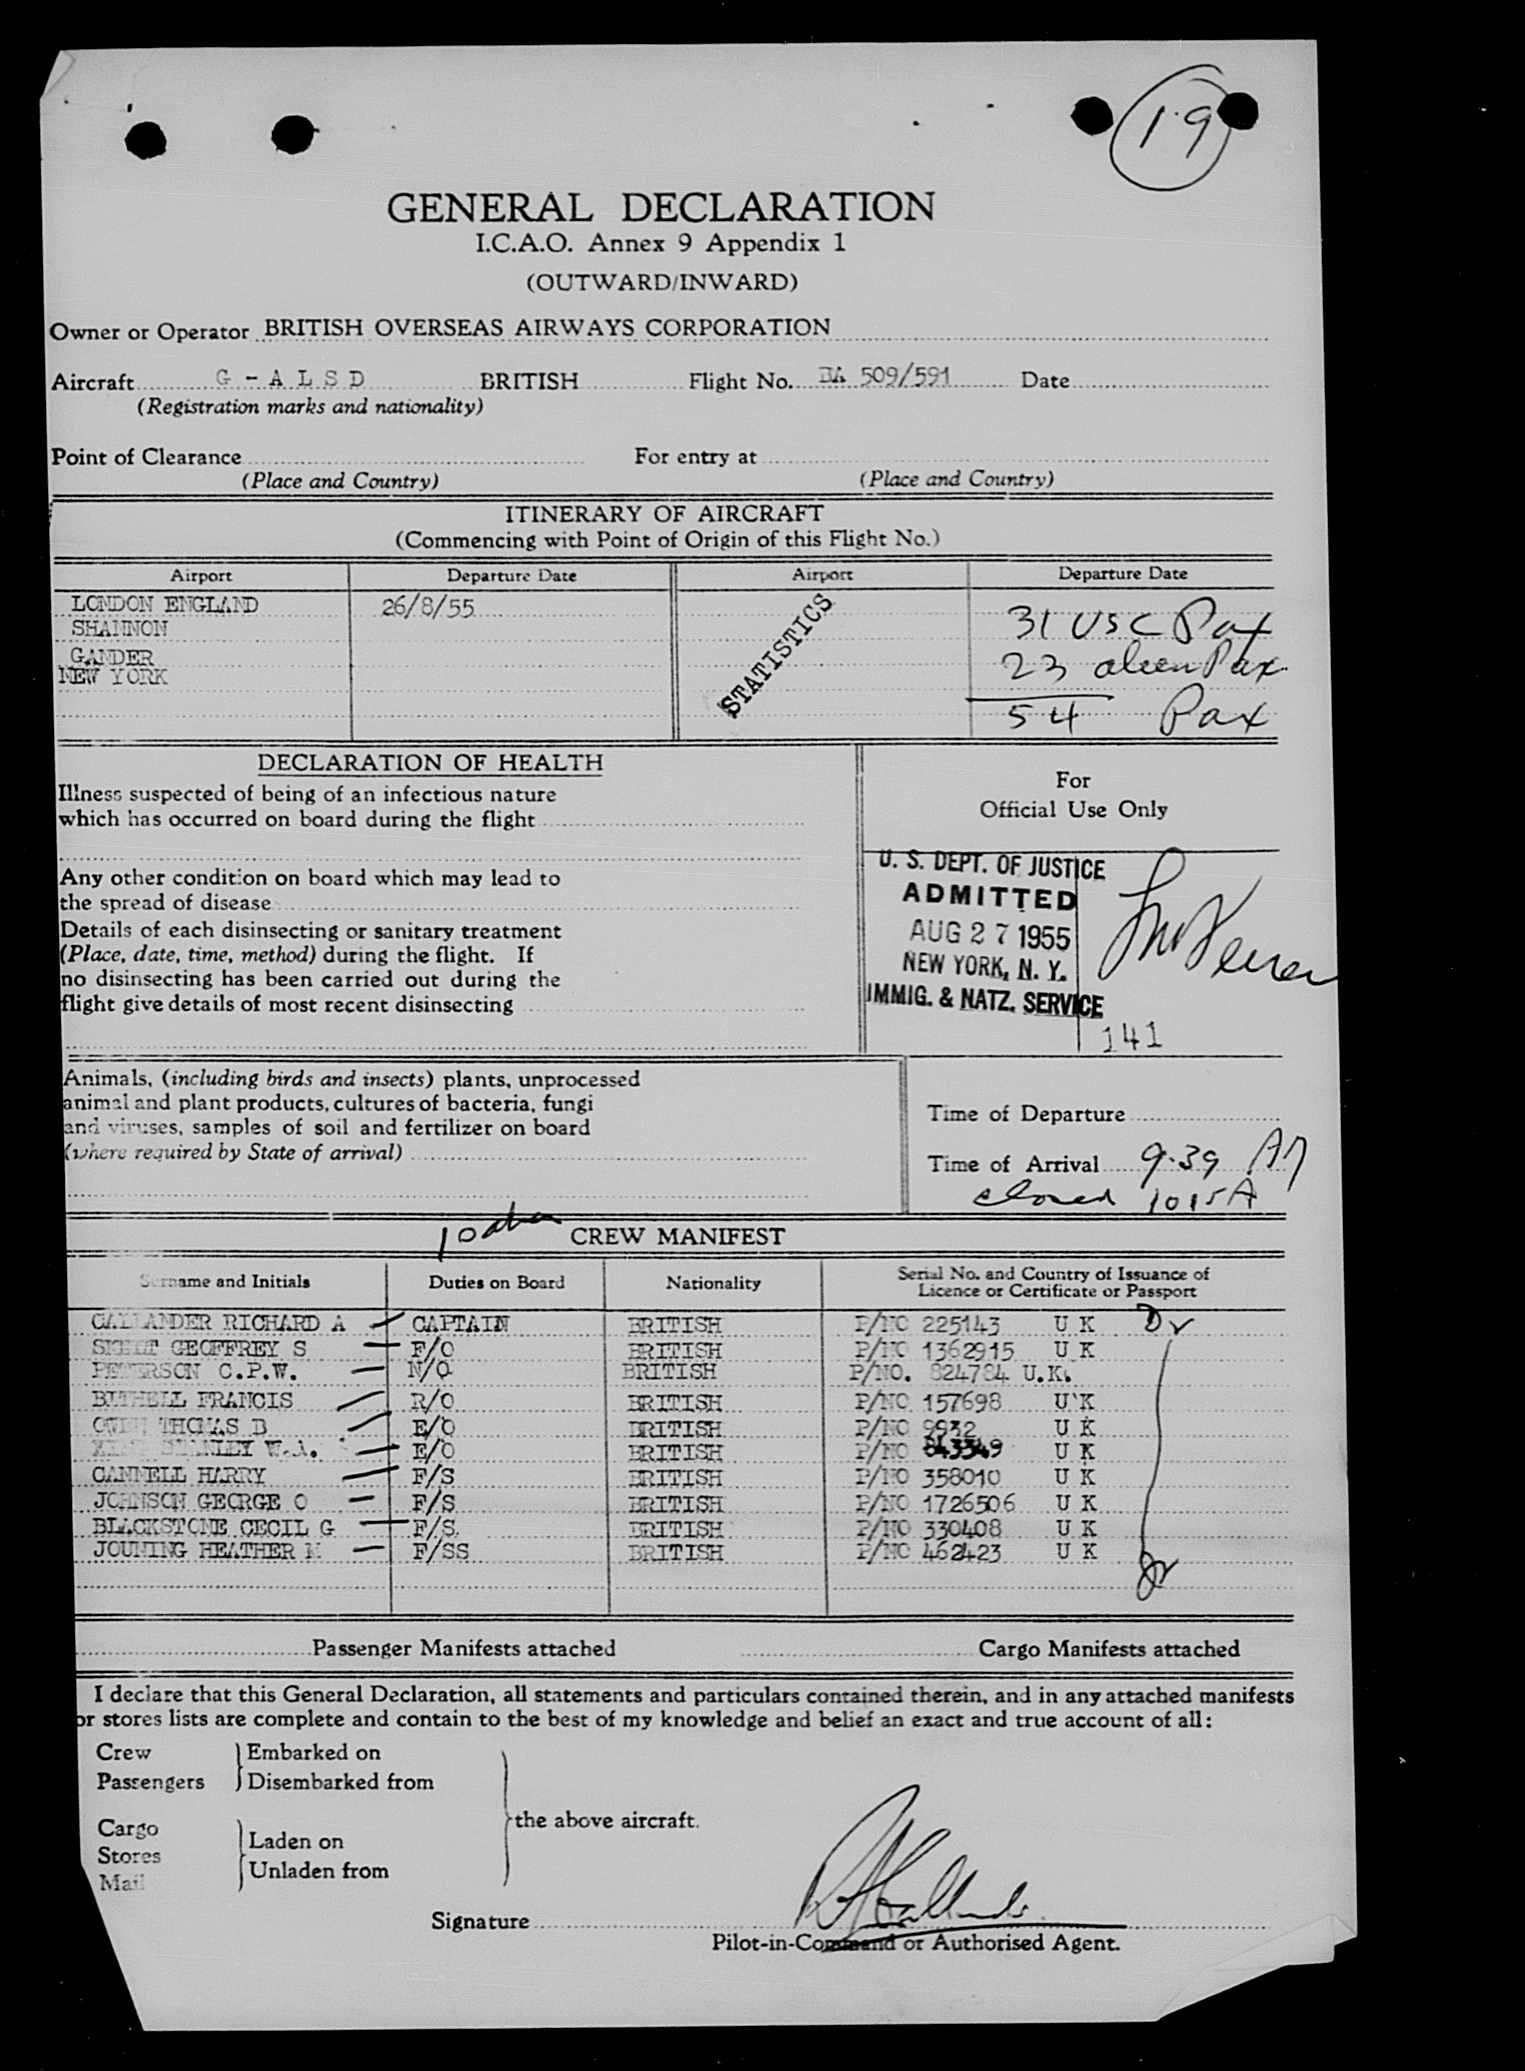 19
GENERAL DECLARATION
I.C.A.O. Annex 9 Appendix 1
(OUTWARD/INWARD)
Owner or Operator BRITISH OVERSEAS AIRWAYS CORPORATION
Aircraft G - A L S D BRITISH Flight No. BA 509/591 Date
(Registration marks and nationality)
Point of Clearance For entry at
(Place and Country) (Place and Country)
ITINERARY OF AIRCRAFT
(Commencing with Point of Origin of this Flight No.)
Airport Departure Date Airport Departure Date
LONDON ENGLAND 26/8/55
SHANNON 31 USC Pax
GANDER 23 alien Pax
NEW YORK
54 Pax
STATISTICS
DECLARATION OF HEALTH
Illness suspected of being of an infectious nature
which has occurred on board during the flight
Any other condition on board which may lead to
the spread of disease
Details of each disinsecting or sanitary treatment
(Place, date, time, method) during the flight. If
no disinsecting has been carried out during the
flight give details of most recent disinsecting
For
Official Use Only
U. S. DEPT. OF JUSTICE
ADMITTED
AUG 27 1955
NEW YORK, N. Y.
IMMIG. & NATZ. SERVICE
141
Animals, (including birds and insects) plants, unprocessed
animal and plant products, cultures of bacteria, fungi
and viruses, samples of soil and fertilizer on board
(where required by State of arrival)
Time of Departure
Time of Arrival 9.39 AM
closed 1015A
10 CREW MANIFEST
Surname and Initials Duties on Board Nationality Serial No. and Country of Issuance of
Licence or Certificate or Passport
CALLANDER RICHARD A CAPTAIN BRITISH P/NO 225143 U K
GEOFFREY S F/O BRITISH P/NO 1362915 U K
PETERSON C.P.W. N/O BRITISH P/NO. 824784 U.K.
BITHELL FRANCIS R/O BRITISH P/NO 157698 U K
OWEN THOMAS B E/O BRITISH P/NO 9932 U K
STANLEY W.A. E/O BRITISH P/NO 843349 U K
CANNELL HARRY F/S BRITISH P/NO 358010 U K
JOHNSON GEORGE O F/S BRITISH P/NO 1726506 U K
BLACKSTONE CECIL G F/S BRITISH P/NO 330408 U K
JOUNING HEATHER M F/SS BRITISH P/NO 462423 U K
Passenger Manifests attached Cargo Manifests attached
I declare that this General Declaration, all statements and particulars contained therein, and in any attached manifests
or stores lists are complete and contain to the best of my knowledge and belief an exact and true account of all:
Crew Embarked on
Passengers Disembarked from
the above aircraft.
Cargo
Stores Laden on
Mail Unladen from
Signature
Pilot-in-Command or Authorised Agent.